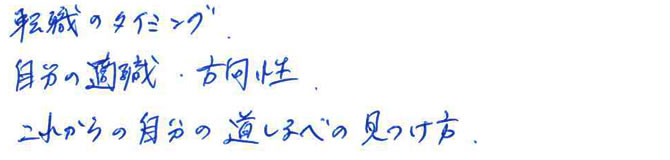 転職のタイミング.
自分の適職・方向性.
これからの自分の道しるべの見つけ方.